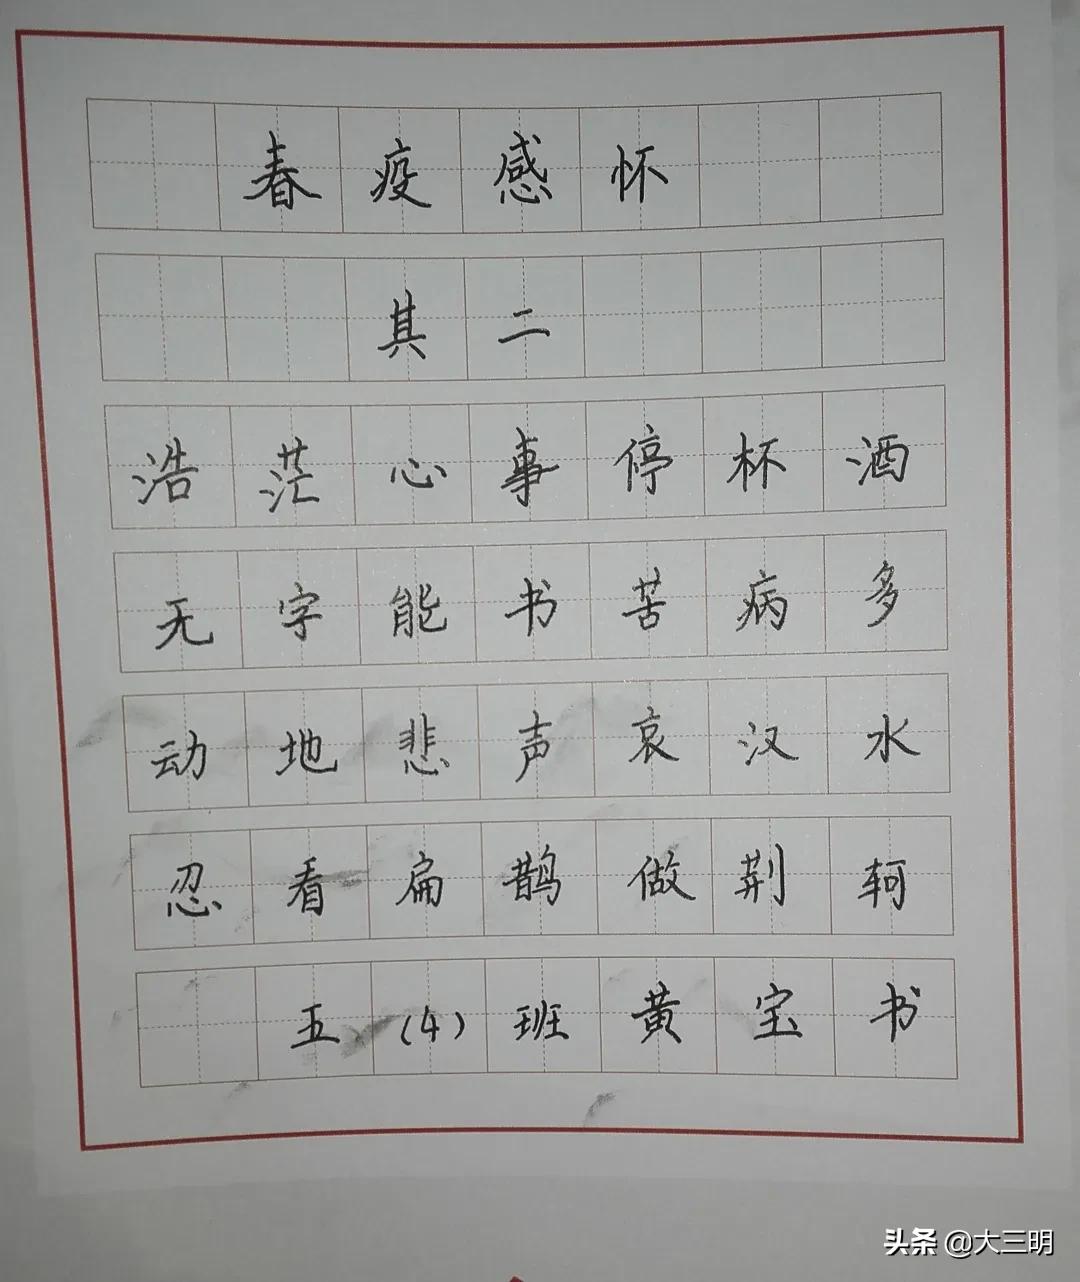 春疫感怀
其二
浩茫心事停杯酒
无字能书苦病多
动地悲声哀汉水
忍看扁鹊做荆轲
五(4)班黄宝书
头条 @大三明